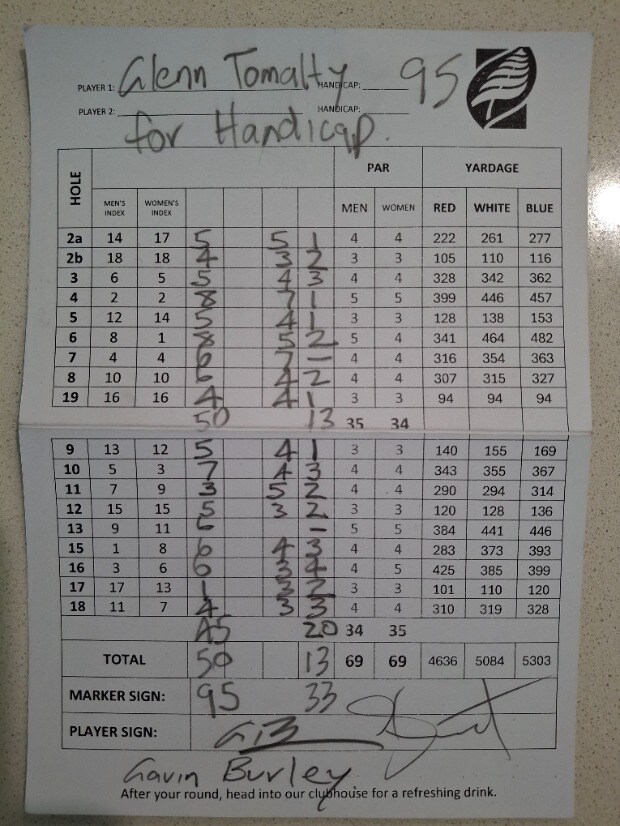 PLAYER 1: Glenn Tomalty HANDICAP: 95
PLAYER 2: HANDICAP:
for Handicap.
HOLE MEN'S INDEX WOMEN'S INDEX PAR YARDAGE
MEN WOMEN RED WHITE BLUE
2a 14 17 5 5 1 4 4 222 261 277
2b 18 18 4 3 2 3 3 105 110 116
3 6 5 5 4 3 4 4 328 342 362
4 2 2 8 7 1 5 5 399 446 457
5 12 14 5 4 1 3 3 128 138 153
6 8 1 8 5 2 5 4 341 464 482
7 4 4 6 7 – 4 4 316 354 363
8 10 10 6 4 2 4 4 307 315 327
19 16 16 4 4 1 3 3 94 94 94
50 13 35 34
9 13 12 5 4 1 3 3 140 155 169
10 5 3 7 4 3 4 4 343 355 367
11 7 9 3 5 2 4 4 290 294 314
12 15 15 5 3 2 3 3 120 128 136
13 9 11 6 – 5 5 384 441 446
15 1 8 6 4 3 4 4 283 373 393
16 3 6 6 3 4 4 5 425 385 399
17 17 13 1 3 2 3 3 101 110 120
18 11 7 4 3 3 4 4 310 319 328
45 20 34 35
TOTAL 50 13 69 69 4636 5084 5303
MARKER SIGN: 95 33
PLAYER SIGN: GB
Gavin Burley
After your round, head into our clubhouse for a refreshing drink.